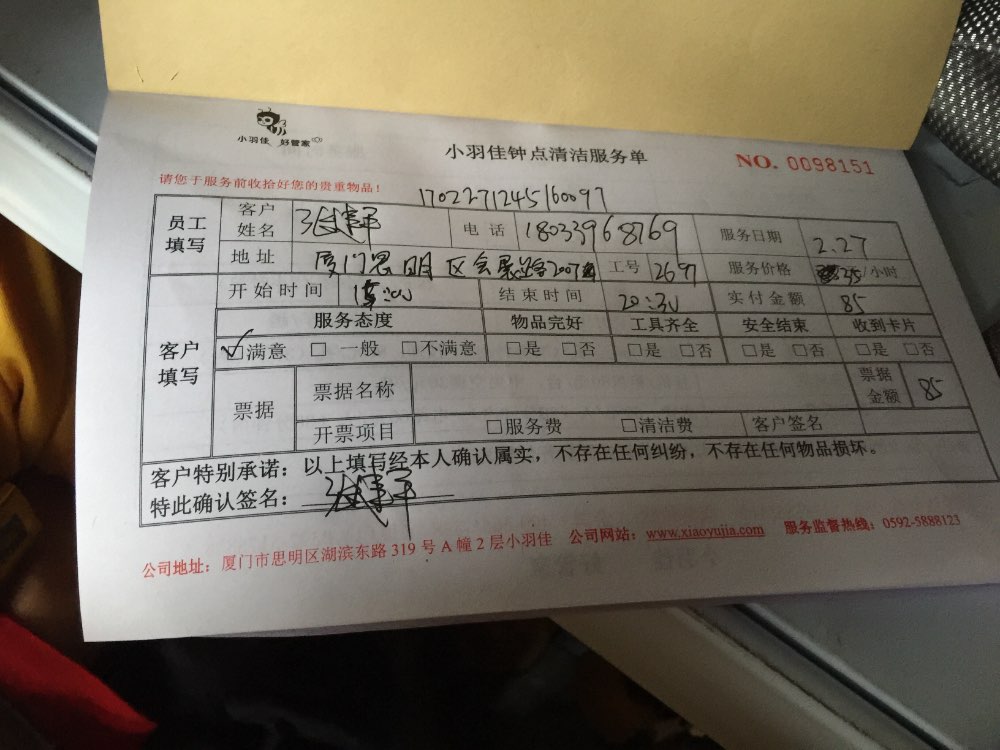 小羽佳 好管家
小羽佳钟点清洁服务单
NO. 0098151
请您于服务前收拾好您的贵重物品！
1702271245160097
员工填写 客户姓名 电话 18033968769 服务日期 2.27
地址 厦门思明区会展 2007 工号 2697 服务价格 35/小时
客户填写 开始时间 结束时间 20:30 实付金额 85
服务态度 物品完好 工具齐全 安全结束 收到卡片
☑满意 □ 一般 □不满意 □是 □否 □是 □否 □是 □否 □是 □否
票据 票据名称 票据金额 85
开票项目 □服务费 □清洁费 客户签名
客户特别承诺：以上填写经本人确认属实，不存在任何纠纷，不存在任何物品损坏。
特此确认签名：
公司地址：厦门市思明区湖滨东路 319 号 A 幢 2 层小羽佳 公司网站：www.xiaoyujia.com 服务监督热线：0592-5888123